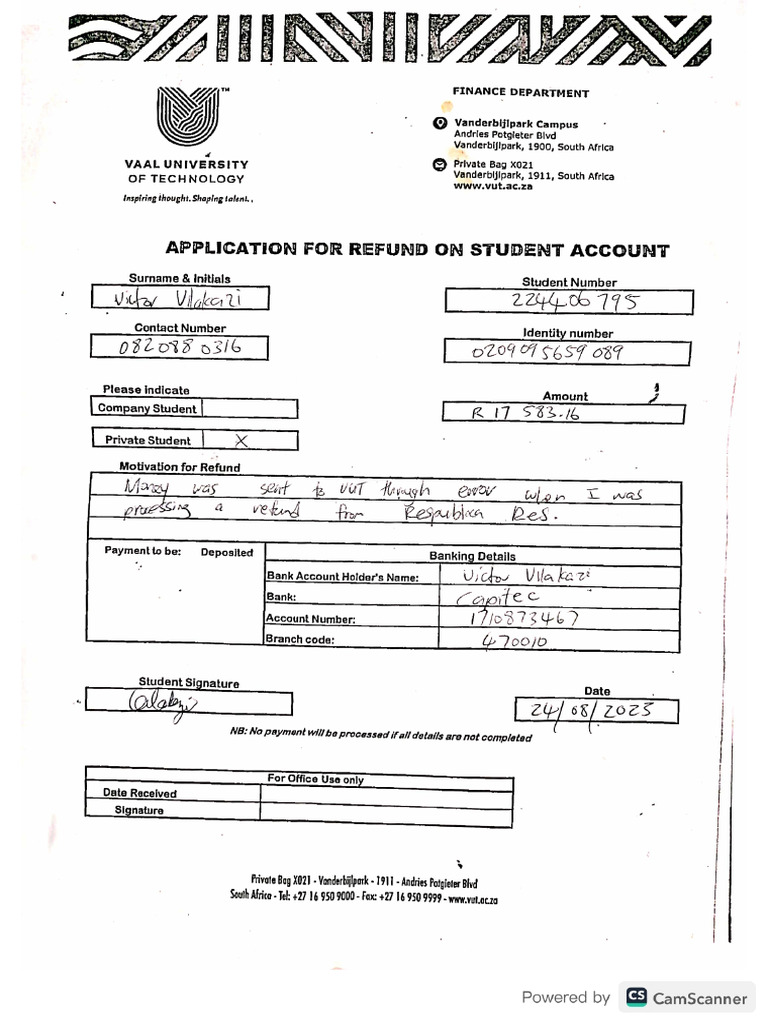 FINANCE DEPARTMENT
Vanderbijlpark Campus
Andries Potgieter Blvd
Vanderbijlpark, 1900, South Africa
Private Bag X021
Vanderbijlpark, 1911, South Africa
www.vut.ac.za
TM
VAAL UNIVERSITY
OF TECHNOLOGY
Inspiring thought. Shaping talent.
APPLICATION FOR REFUND ON STUDENT ACCOUNT
Surname & Initials
Victor Vilakazi
Student Number
224406795
Contact Number
082 088 0316
Identity number
0209095659089
Please indicate
Company Student
Private Student X
Amount
R 17 583.16
Motivation for Refund
Money was sent to VUT through error when I was
processing a refund from Respublica Res.
Payment to be: Deposited
Banking Details
Bank Account Holder's Name: Victor Vilakazi
Bank: Capitec
Account Number: 1710873467
Branch code: 470010
Student Signature
Date
24/08/2023
NB: No payment will be processed if all details are not completed
For Office Use only
Date Received
Signature
Private Bag X021 - Vanderbijlpark - 1911 - Andries Potgieter Blvd
South Africa - Tel: +27 16 950 9000 - Fax: +27 16 950 9999 - www.vut.ac.za
Powered by CS CamScanner